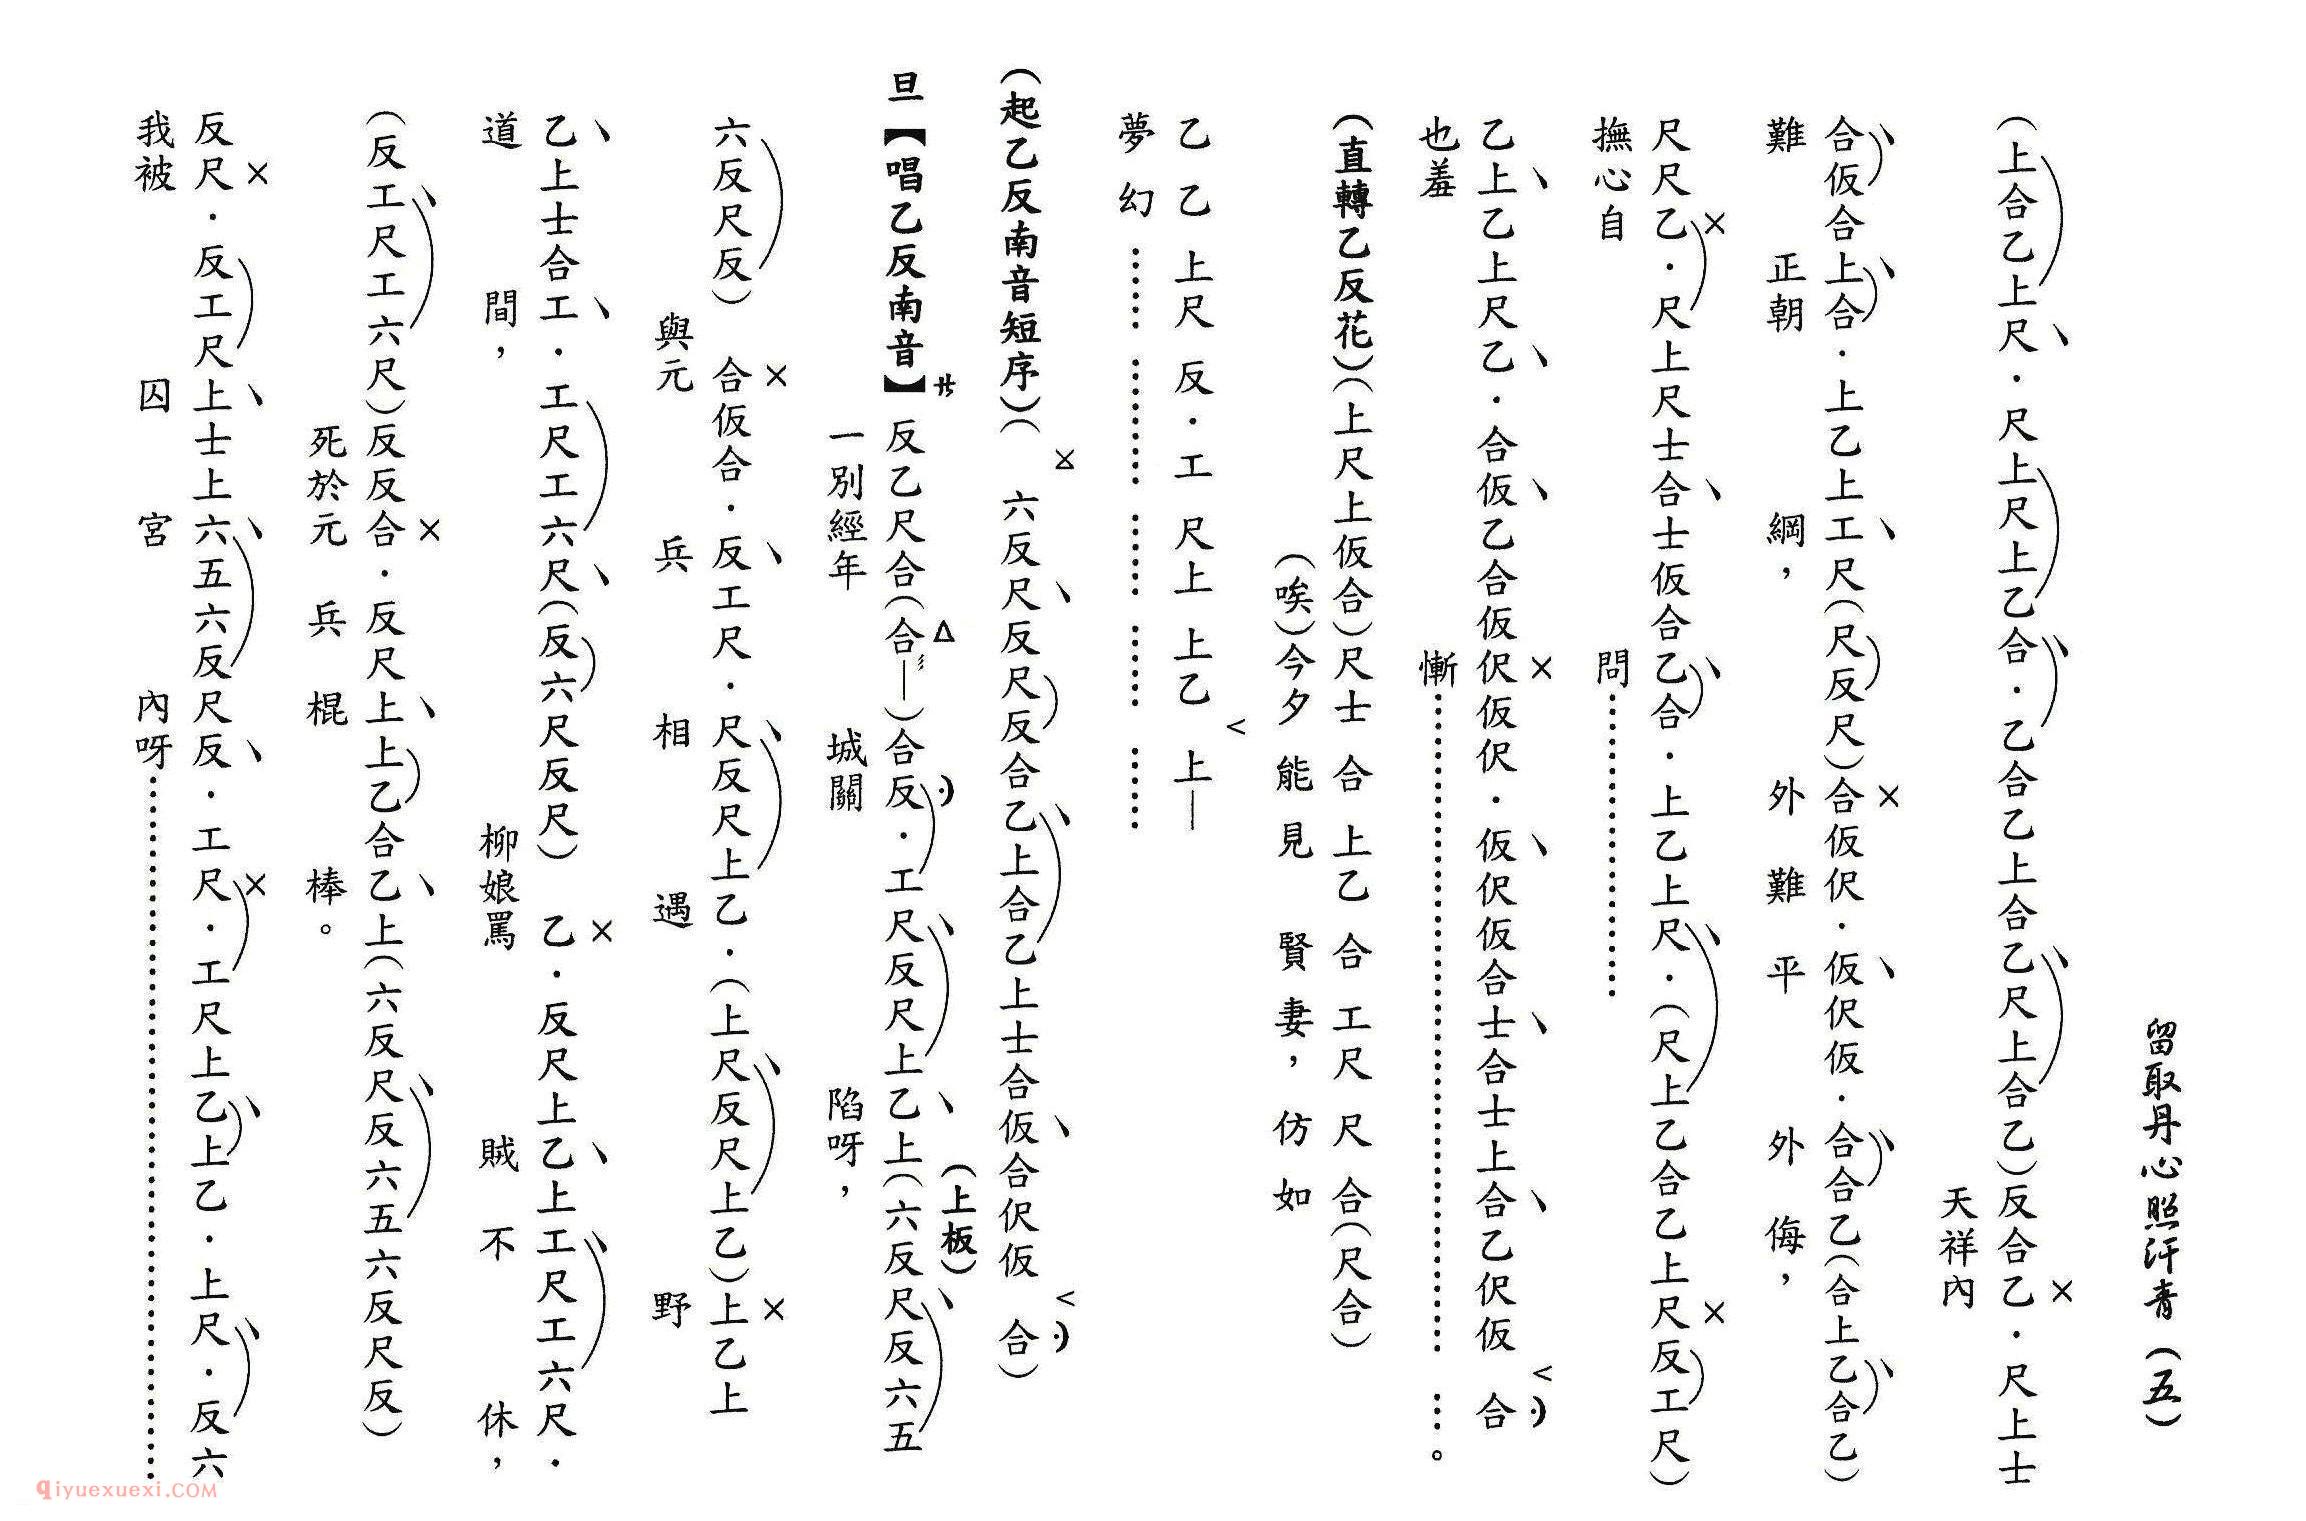 留取丹心照汗青（五）
（上合乙上尺．尺上尺上乙合．乙合乙上合乙尺上合乙）反合乙．尺上士
天祥內
合仮合上合．上乙上工尺（尺反尺）合仮伬．仮伬仮．合合乙（合上乙合乙）
難正朝綱，外難平外侮，
尺尺乙．尺上尺士合士仮合乙合．上乙上尺．（尺上乙合乙上尺反工尺）
撫心自問⋯⋯⋯⋯⋯⋯
乙上乙上尺乙．合仮乙合仮伬仮伬．仮伬仮合士合士上合乙伬仮合
也羞慚⋯⋯⋯⋯⋯⋯⋯⋯⋯⋯⋯⋯。
（直轉乙反花）（上尺上仮合）尺士合上乙合工尺尺合（尺合）
（唉）今夕能見賢妻，仿如
乙乙上尺反．工尺上上乙上—
夢幻⋯⋯⋯⋯⋯⋯⋯⋯⋯⋯
（起乙反南音短序）（六反尺反尺反合乙上合乙上士合仮合伬仮合）
旦【唱乙反南音】反乙尺合（合—）合反．工尺反尺上乙上（六反尺反六五
（上板）
一別經年城關陷呀，
六反尺反）合仮合．反工尺．尺反尺上乙．（上尺反尺上乙）上乙上
與元兵相遇野
乙上士合工．工尺工六尺（反六尺反尺）乙．反尺上乙上工尺工六尺．
道間，柳娘罵賊不休，
（反工尺工六尺）反反合．反尺上上乙合乙上（六反尺反六五六反尺反）
死於元兵棍棒。
反尺．反工尺上士上六五六反尺反．工尺．工尺上乙上乙．上尺．反六
我被囚宮內呀⋯⋯⋯⋯⋯⋯⋯⋯⋯⋯
qiyuexuexi.COM